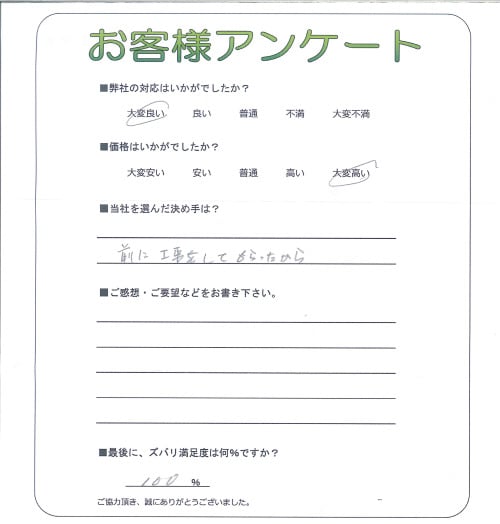 お客様アンケート
■弊社の対応はいかがでしたか？
大変良い 良い 普通 不満 大変不満
■価格はいかがでしたか？
大変安い 安い 普通 高い 大変高い
■当社を選んだ決め手は？
前に工事をしてもらったから
■ご感想・ご要望などをお書き下さい。
■最後に、ズバリ満足度は何%ですか？
100 %
ご協力頂き、誠にありがとうございました。